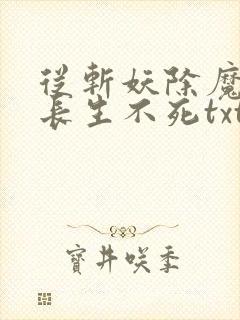 從斬妖除魔
長生不死txt
寶井咲季